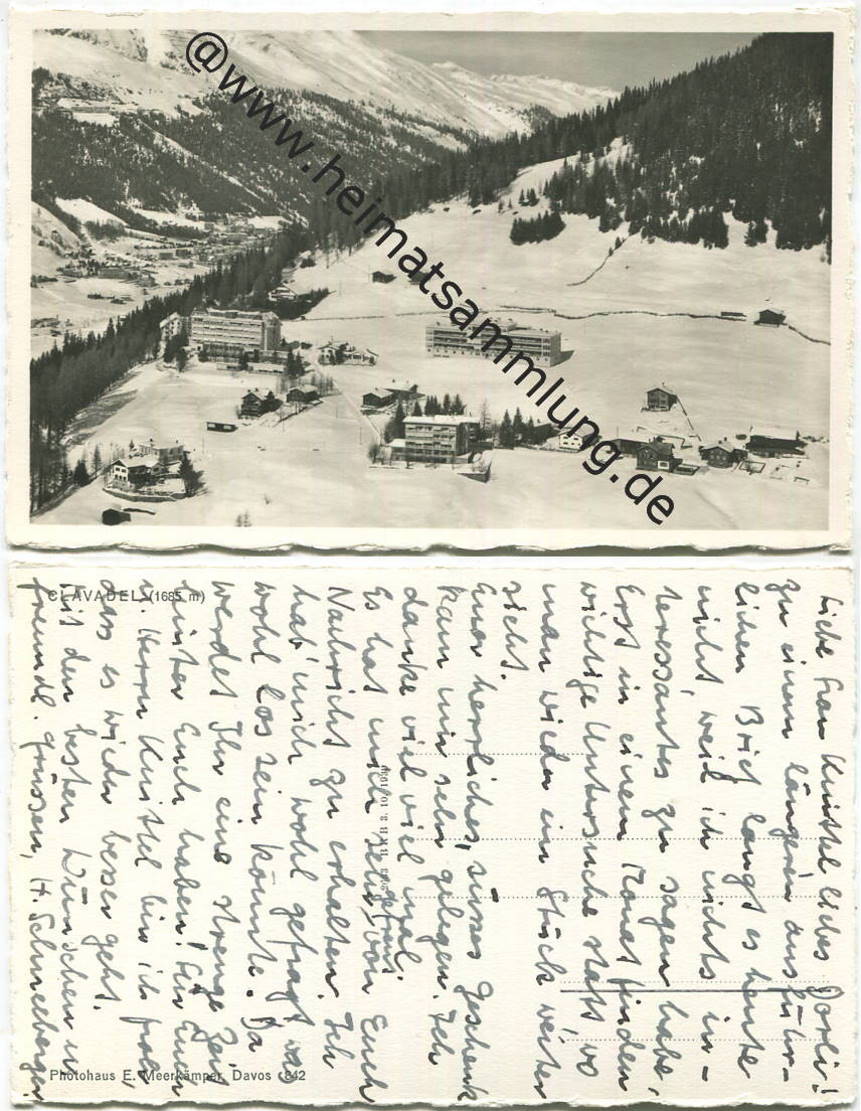 @www.heimatsammlung.de
CLAVADEL (1685 m)
Liebe Frau Knittel liebes Dorli!
zu einem längeren ausführ-
lichen Brief langt es heute
nicht weil ich nichts in-
teressantes zu sagen habe,
Erst in einem Monat finden
wichtige Untersuche statt, wo
man wieder ein Stück weiter
sieht.
Euer herrliches, süsses Geschenk
kam mir sehr gelegen. Ich
danke viel viel mal.
Es hat mich sehr gefreut von Euch
Nachricht zu erhalten. Ich
hab' mich wohl gefragt wa
wohl los sein könnte. Da
werdet Ihr eine strenge Zeit
hinter Euch haben! Für Euch
u. Herrn Knittel bin ich froh,
dass es wieder besser geht.
Mit den besten Wünschen u.
freundl. Grüssen, H. Schneeberger
Photohaus E. Meerkämper, Davos 842